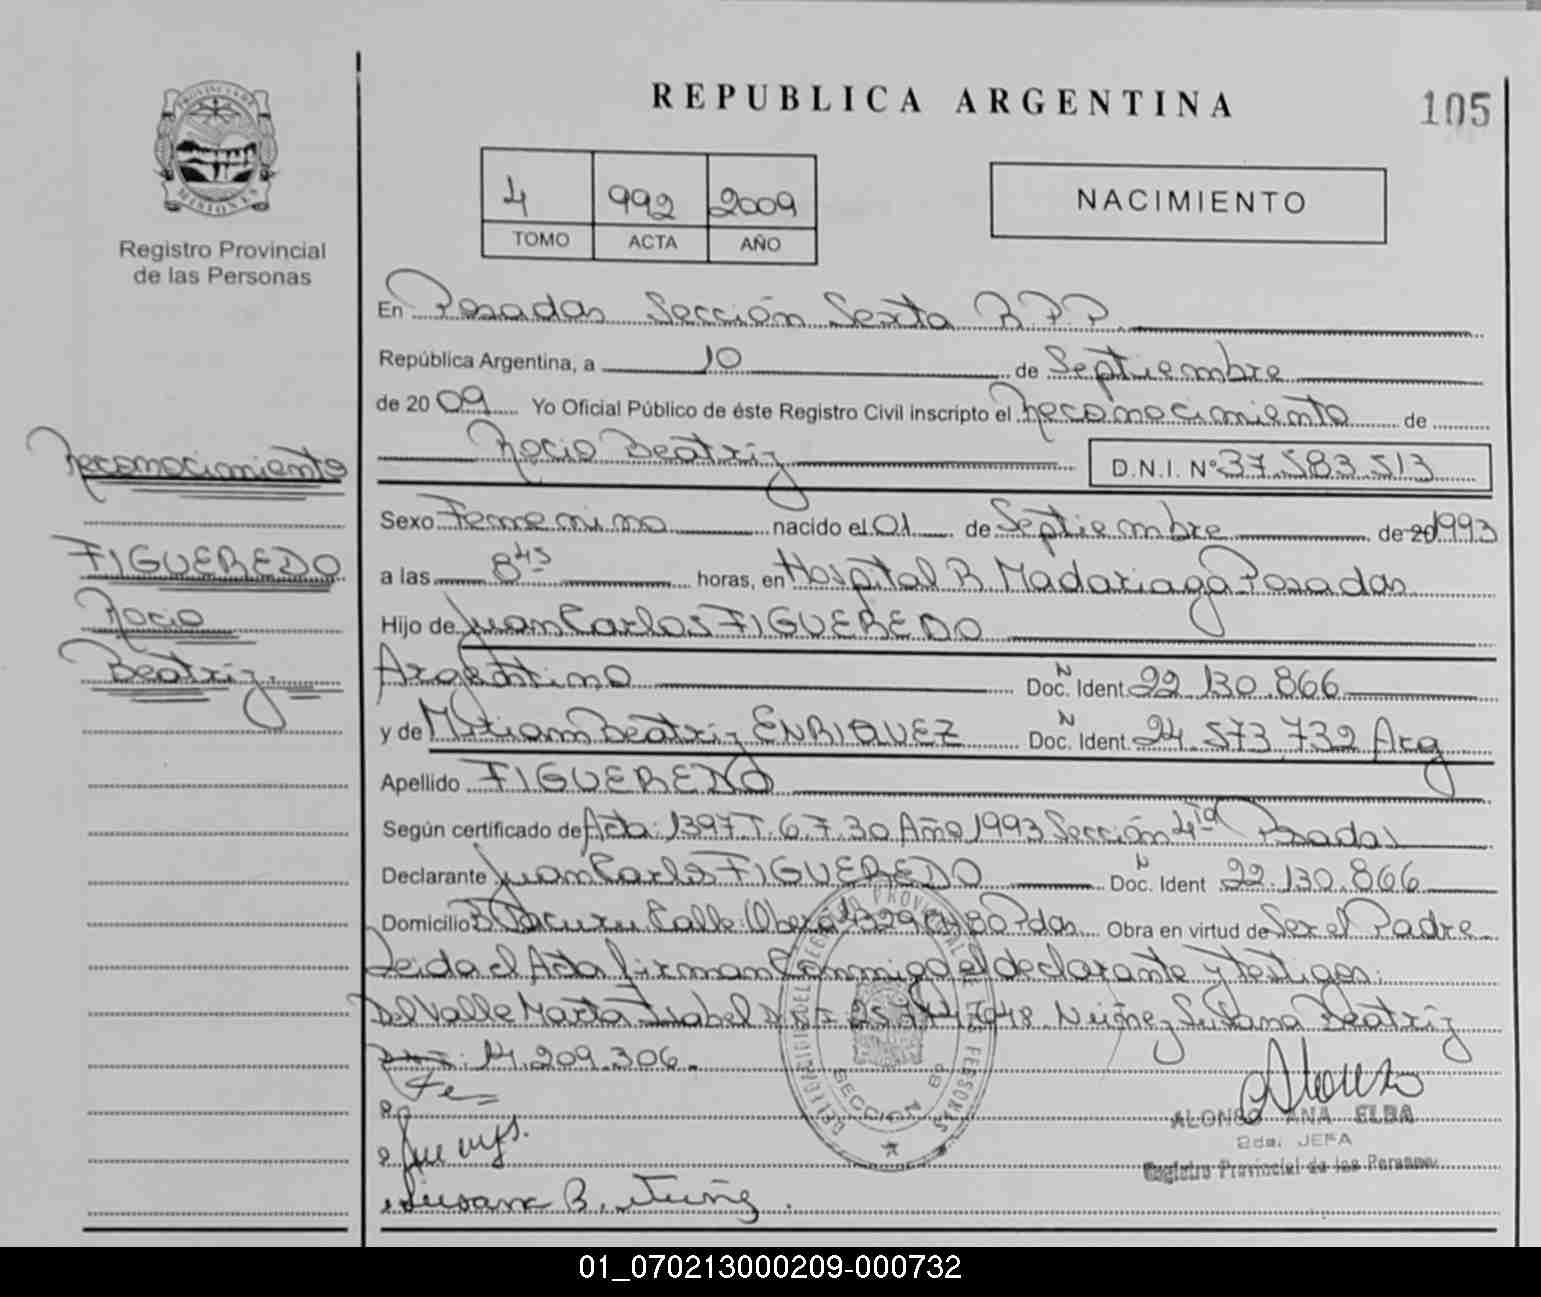 REPUBLICA ARGENTINA
105
PROVINCIA DE
MISIONES
Registro Provincial
de las Personas
4 992 2009
TOMO ACTA AÑO
NACIMIENTO
En Posadas Sección Sexta R.P.P.
República Argentina, a 10 de Septiembre
de 2009 Yo Oficial Público de éste Registro Civil inscripto el Reconocimiento de
Rocio Beatriz D.N.I. Nº 37.583.513
Sexo Femenino nacido el 01 de Septiembre de 20 1993
a las 8 45 horas, en Hospital R. Madariaga Posadas
Hijo de Juan Carlos FIGUEREDO
Argentino Doc. N Ident. 22.130.866
y de Miriam Beatriz ENRIQUEZ Doc. N Ident. 24.573.732 Arg
Apellido FIGUEREDO
Según certificado de Acta: 1397 T. 6 F. 30 Año 1993 Sección 4ta Posadas
Declarante Juan Carlos FIGUEREDO Doc. N Ident 22.130.866
Domicilio Calle Oberá Pdas Obra en virtud de Ser el Padre
Leida el Acta firman Conmigo el declarante y testigos:
Del Valle Marta Isabel Nuñez Susana Beatriz
DNI: 14.209.306.
Reconocimiento
FIGUEREDO
Rocio
Beatriz
DELEGACION DEL REGISTRO PROVINCIAL DE LAS PERSONAS
SECCION 6º
Susana B. Nuñez.
ALONSO ANA ELBA
2da. JEFA
Registro Provincial de las Personas
01_070213000209-000732